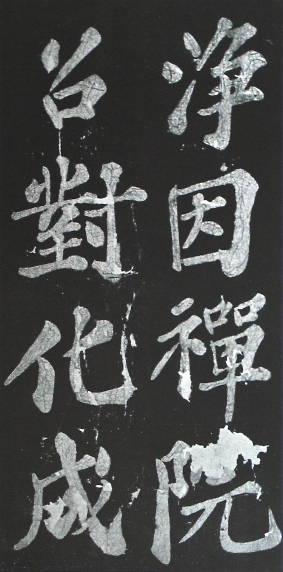 淨因禪院
召對化成